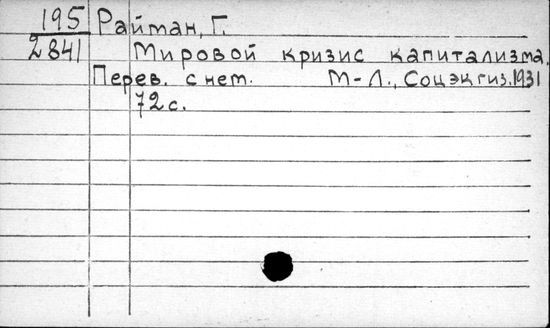 195 Райтан, Г.
2841 Мировой кризис капитализма.
Перев. с нет. М-Л., Соцэкгиз. 1931
72 с.